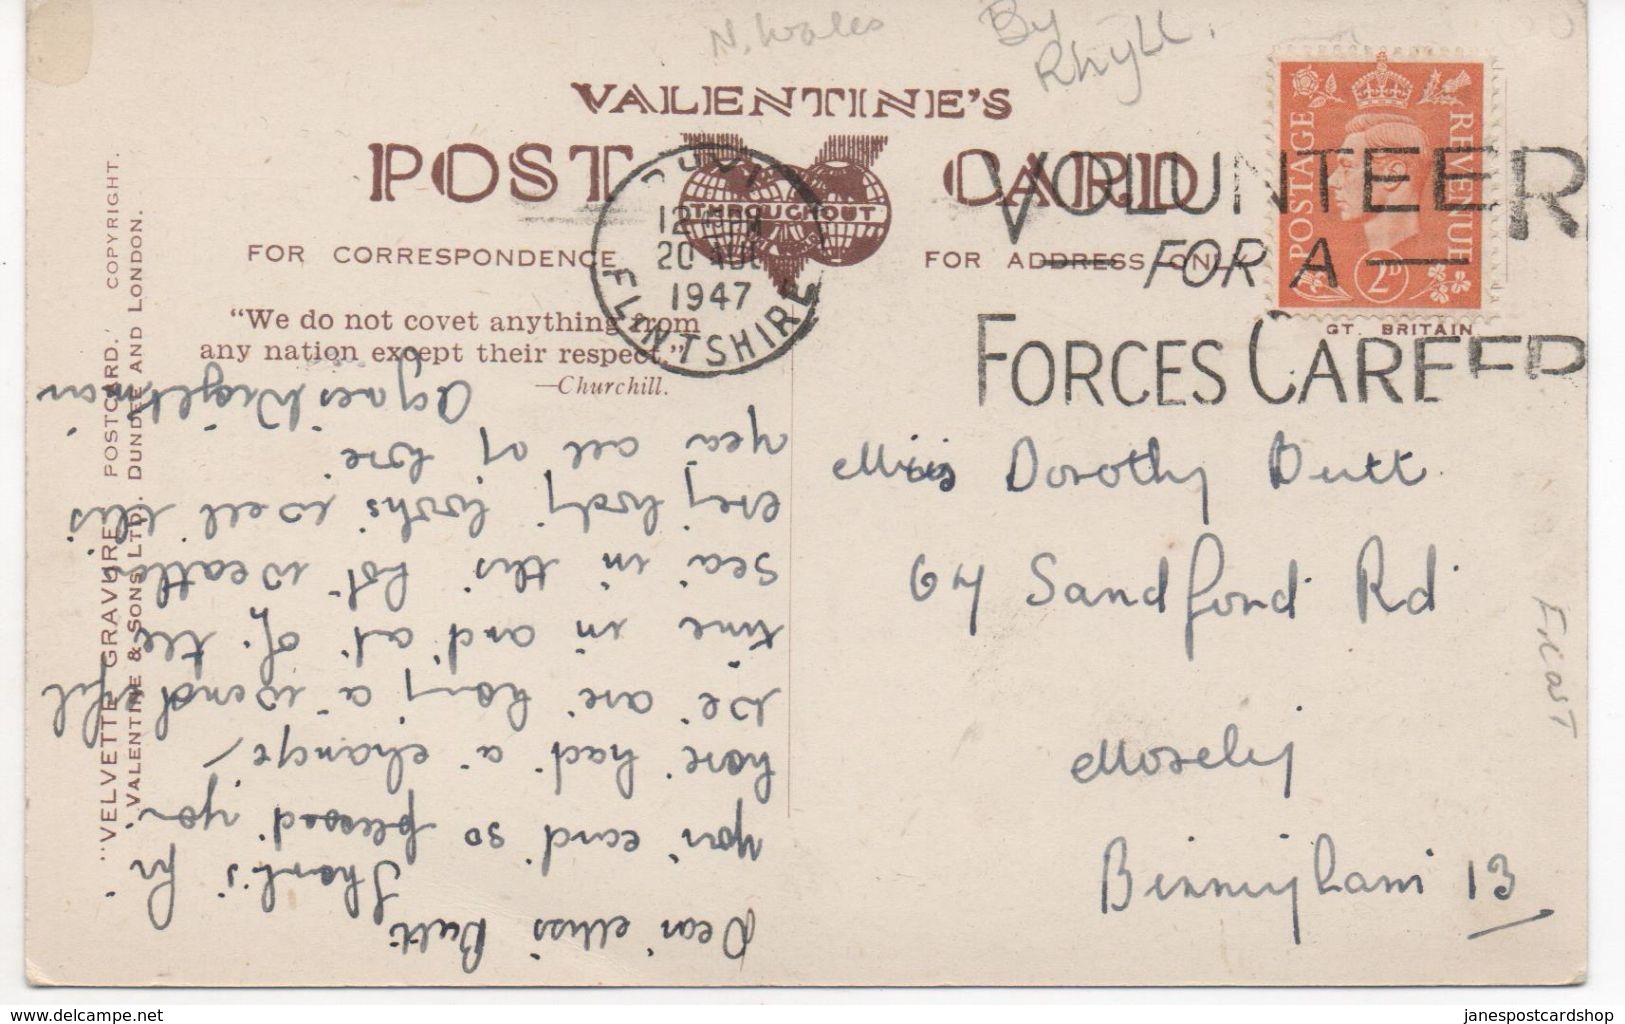 N. Wales
By
Rhyll.
VALENTINE'S
POST CARD
THROUGHOUT
FOR CORRESPONDENCE
FOR ADDRESS ONLY
"We do not covet anything from
any nation except their respect."
—Churchill.
"VELVETTE GRAVURE" POSTCARD. COPYRIGHT.
VALENTINE & SONS LTD. DUNDEE AND LONDON.
20
1947
FLINTSHIRE
VOLUNTEER
FOR A
FORCES CAREER
POSTAGE
REVENUE
2D
GT. BRITAIN
Miss Dorothy Butt
64 Sandford Rd
Mosely
Birmingham 13
Dear Miss Butt
Thanks for
your card so pleased you
have had a change,
we are having a wonderful
time in and out of the
sea in this hot weather
every body looks well this
year all my love
Agnes Wightman
janespostcardshop
www.delcampe.net